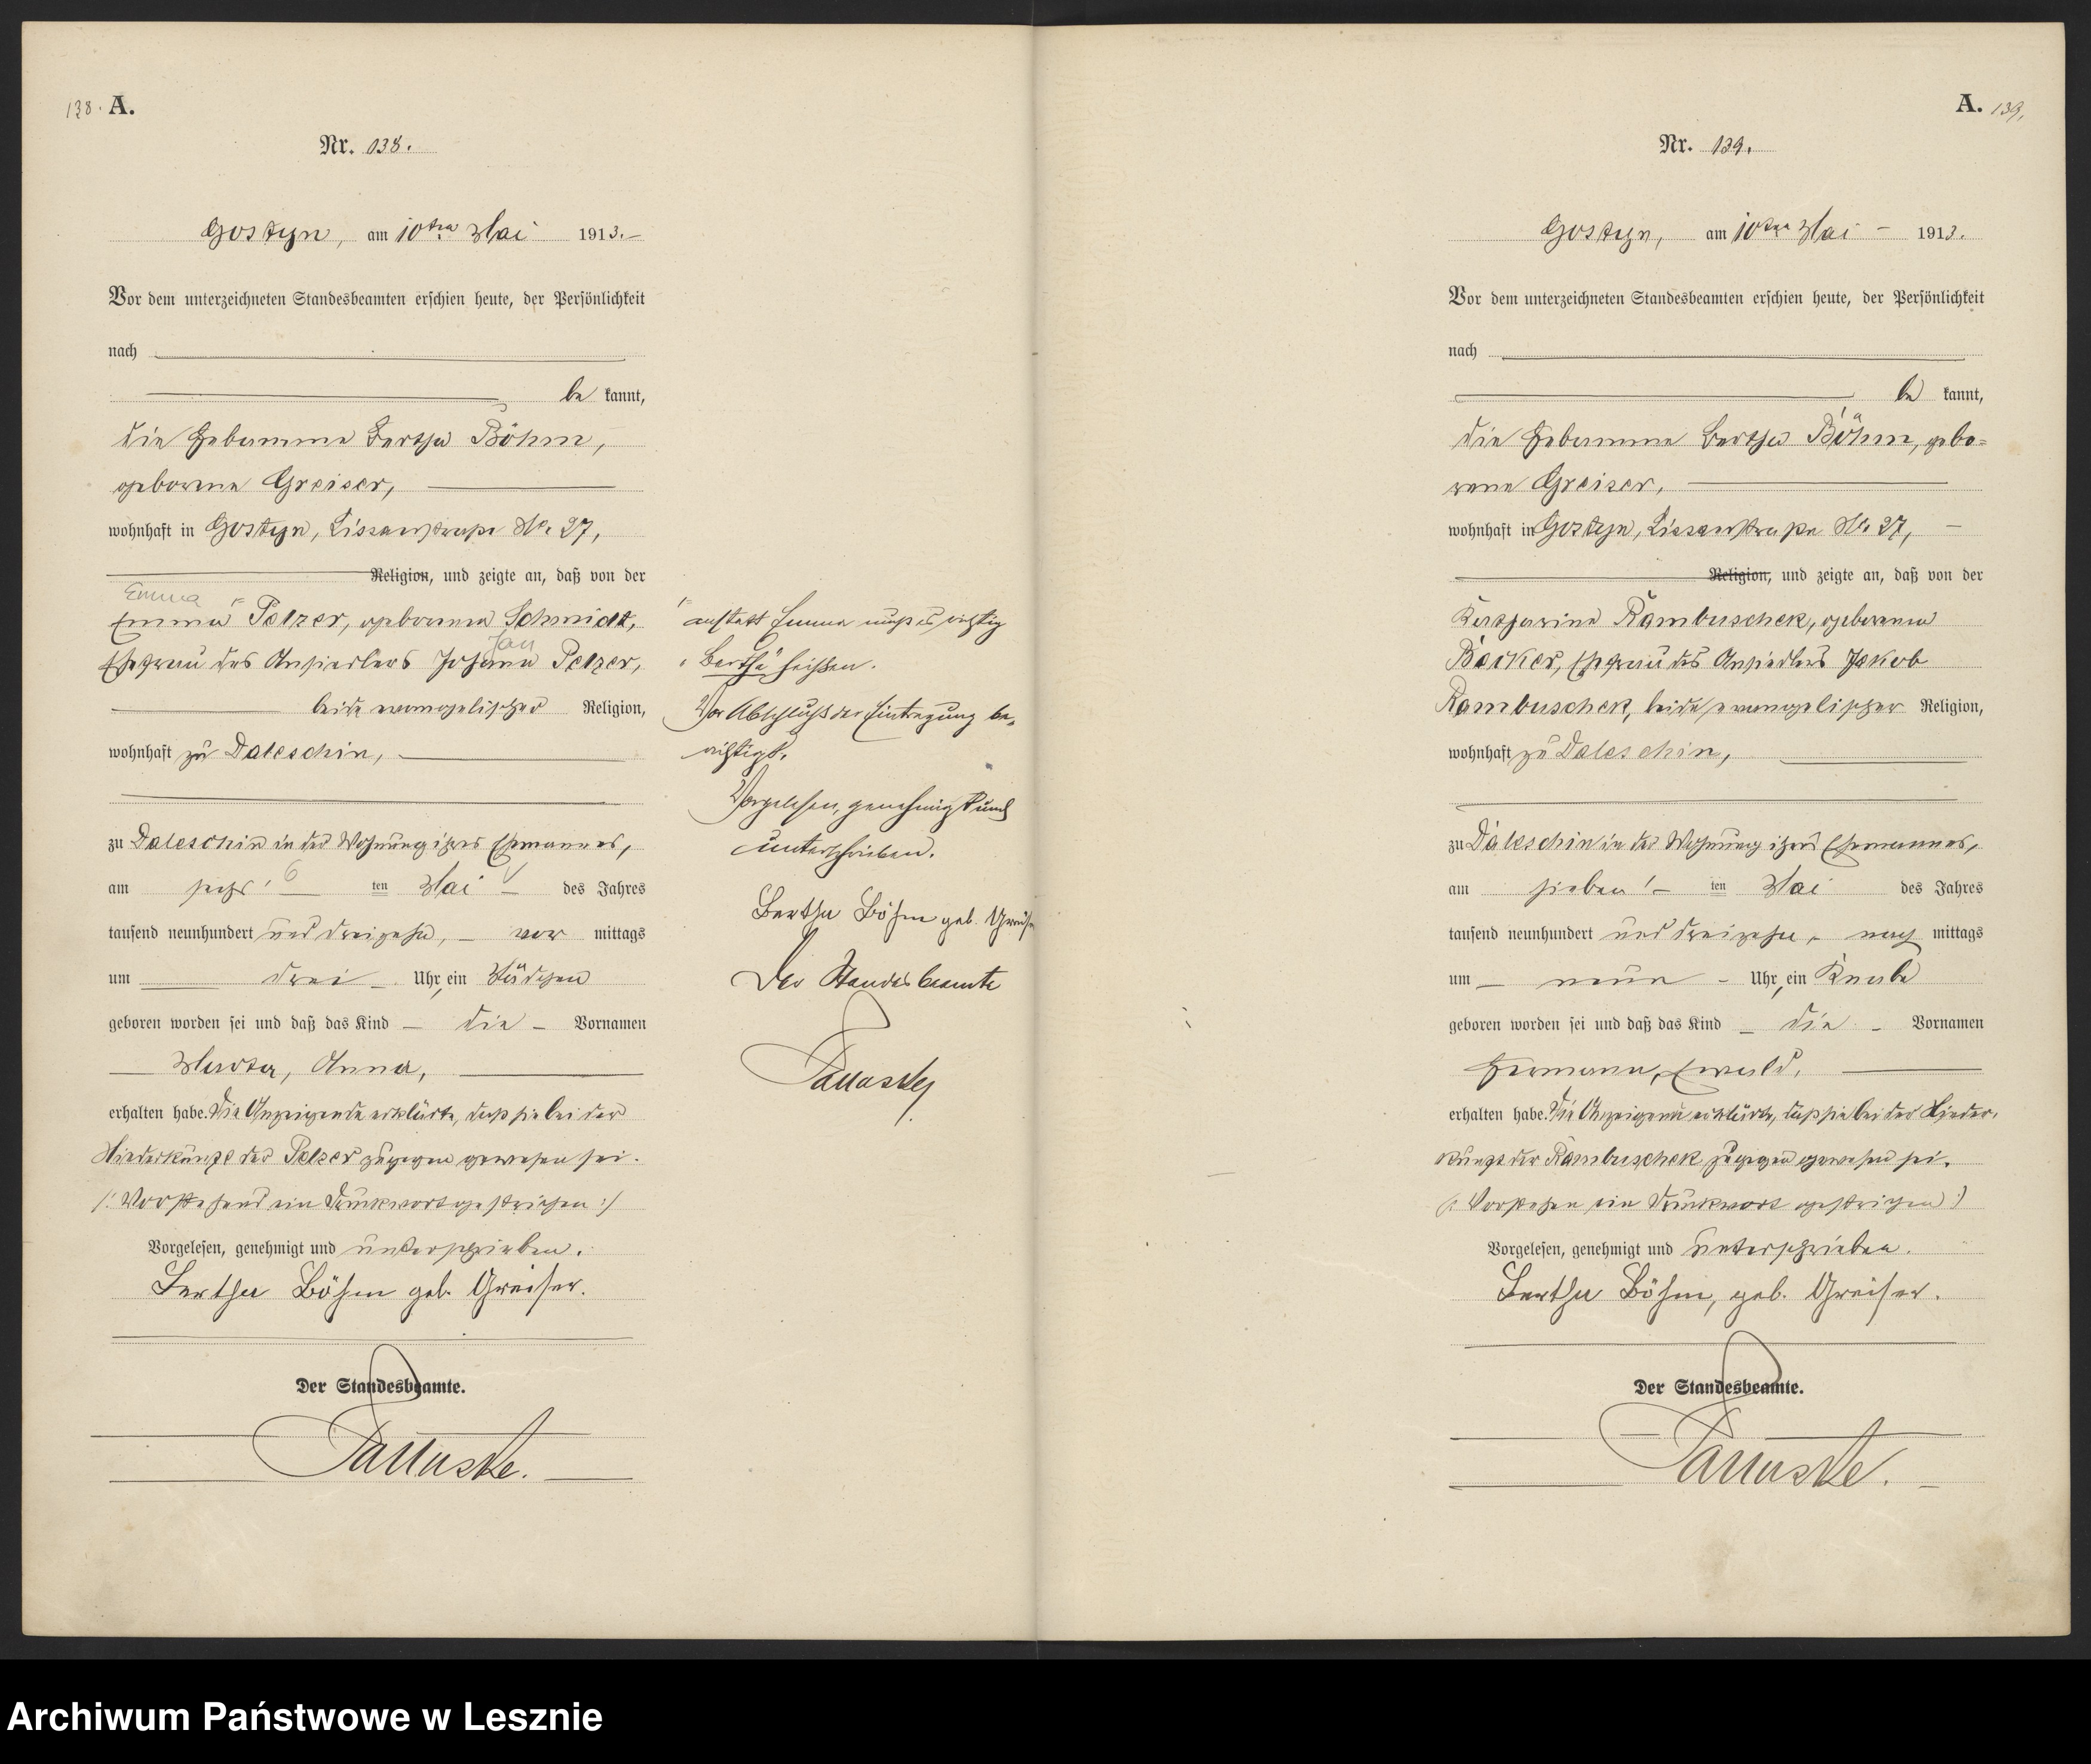 138. A.
Nr. 138.
Gostyn, am 10ten Mai 1913.
Vor dem unterzeichneten Standesbeamten erschien heute, der Persönlichkeit
nach
be kannt,
die Hebamme Bertha Böhm,
geborene Greiser,
wohnhaft in Gostyn, Lissaerstraße No. 27,
Religion, und zeigte an, daß von der
Emma
Emma Pelzer, geborenen Schmidt,
Jan
Ehefrau des Ansiedlers Johann Pelzer,
beide evangelischer Religion,
wohnhaft zu Daleschin,
zu Daleschin in der Wohnung ihres Ehemannes,
am sechs 6 ten Mai des Jahres
tausend neunhundert und dreizehn, vor mittags
um drei Uhr, ein Mädchen
geboren worden sei und daß das Kind die Vornamen
Marta, Anna,
erhalten habe. Die Anzeigende erklärte, daß sie bei der
Niederkunft der Pelzer zugegen gewesen sei.
/: Vorstehend ein Druckwort gestrichen :/
Vorgelesen, genehmigt und unterschrieben.
Bertha Böhm geb. Greiser.
Der Standesbeamte.
anstatt Emma muß es richtig
"Bertha" heißen.
Vor Abschluß der Eintragung be-
richtigt.
Vorgelesen, genehmigt und
unterschrieben.
Bertha Böhm geb. Greiser
Der Standesbeamte
A. 139.
Nr. 139.
Gostyn, am 10ten Mai 1913.
Vor dem unterzeichneten Standesbeamten erschien heute, der Persönlichkeit
nach
be kannt,
die Hebamme Bertha Böhm, gebo-
rene Greiser,
wohnhaft in Gostyn, Lissaerstraße No. 27,
Religion, und zeigte an, daß von der
Katharina Rambuschek, geborenen
Becker, Ehefrau des Ansiedlers Jakob
Rambuschek, beide evangelischer Religion,
wohnhaft zu Daleschin,
zu Daleschin in der Wohnung ihres Ehemannes,
am sieben ten Mai des Jahres
tausend neunhundert und dreizehn, nach mittags
um neun Uhr, ein Knabe
geboren worden sei und daß das Kind die Vornamen
Hermann, Ewald,
erhalten habe. Die Anzeigende erklärte, daß sie bei der Nieder-
kunft der Rambuschek zugegen gewesen sei.
/: Vorstehen ein Druckwort gestrichen :/
Vorgelesen, genehmigt und unterschrieben.
Bertha Böhm, geb. Greiser.
Der Standesbeamte.
Archiwum Państwowe w Lesznie